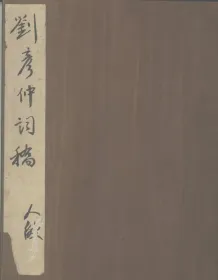 劉彥仲詞稿